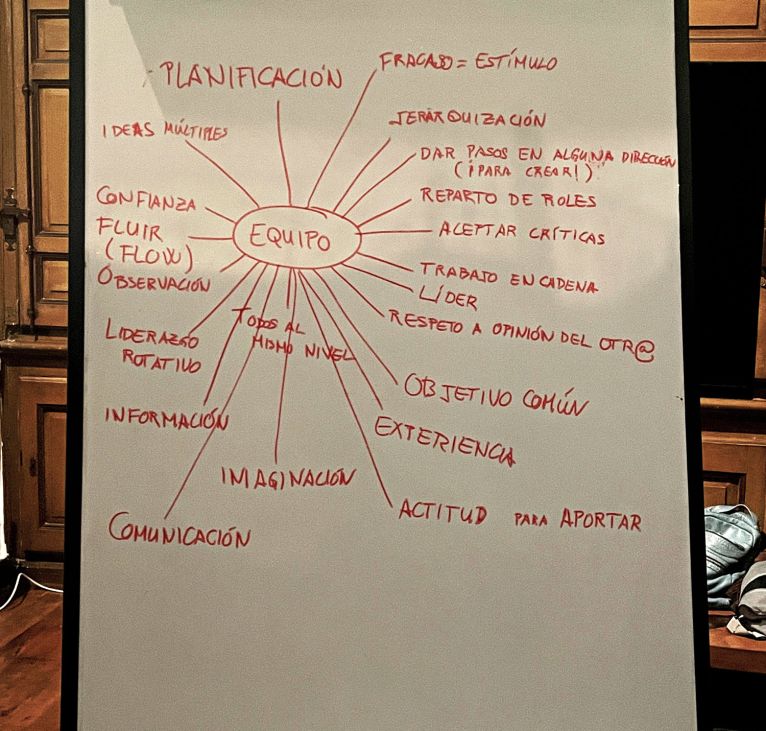 PLANIFICACIÓN
FRACASO = ESTÍMULO
JERARQUIZACIÓN
IDEAS MÚLTIPLES
DAR PASOS EN ALGUNA DIRECCIÓN
(¡PARA CREAR!)
REPARTO DE ROLES
CONFIANZA
FLUIR
(FLOW)
EQUIPO
ACEPTAR CRÍTICAS
OBSERVACIÓN
TRABAJO EN CADENA
LÍDER
RESPETO A OPINIÓN DEL OTR@
LIDERAZGO
ROTATIVO
TODOS AL
MISMO NIVEL
OBJETIVO COMÚN
INFORMACIÓN
EXTERIENCIA
IMAGINACIÓN
ACTITUD PARA APORTAR
COMUNICACIÓN